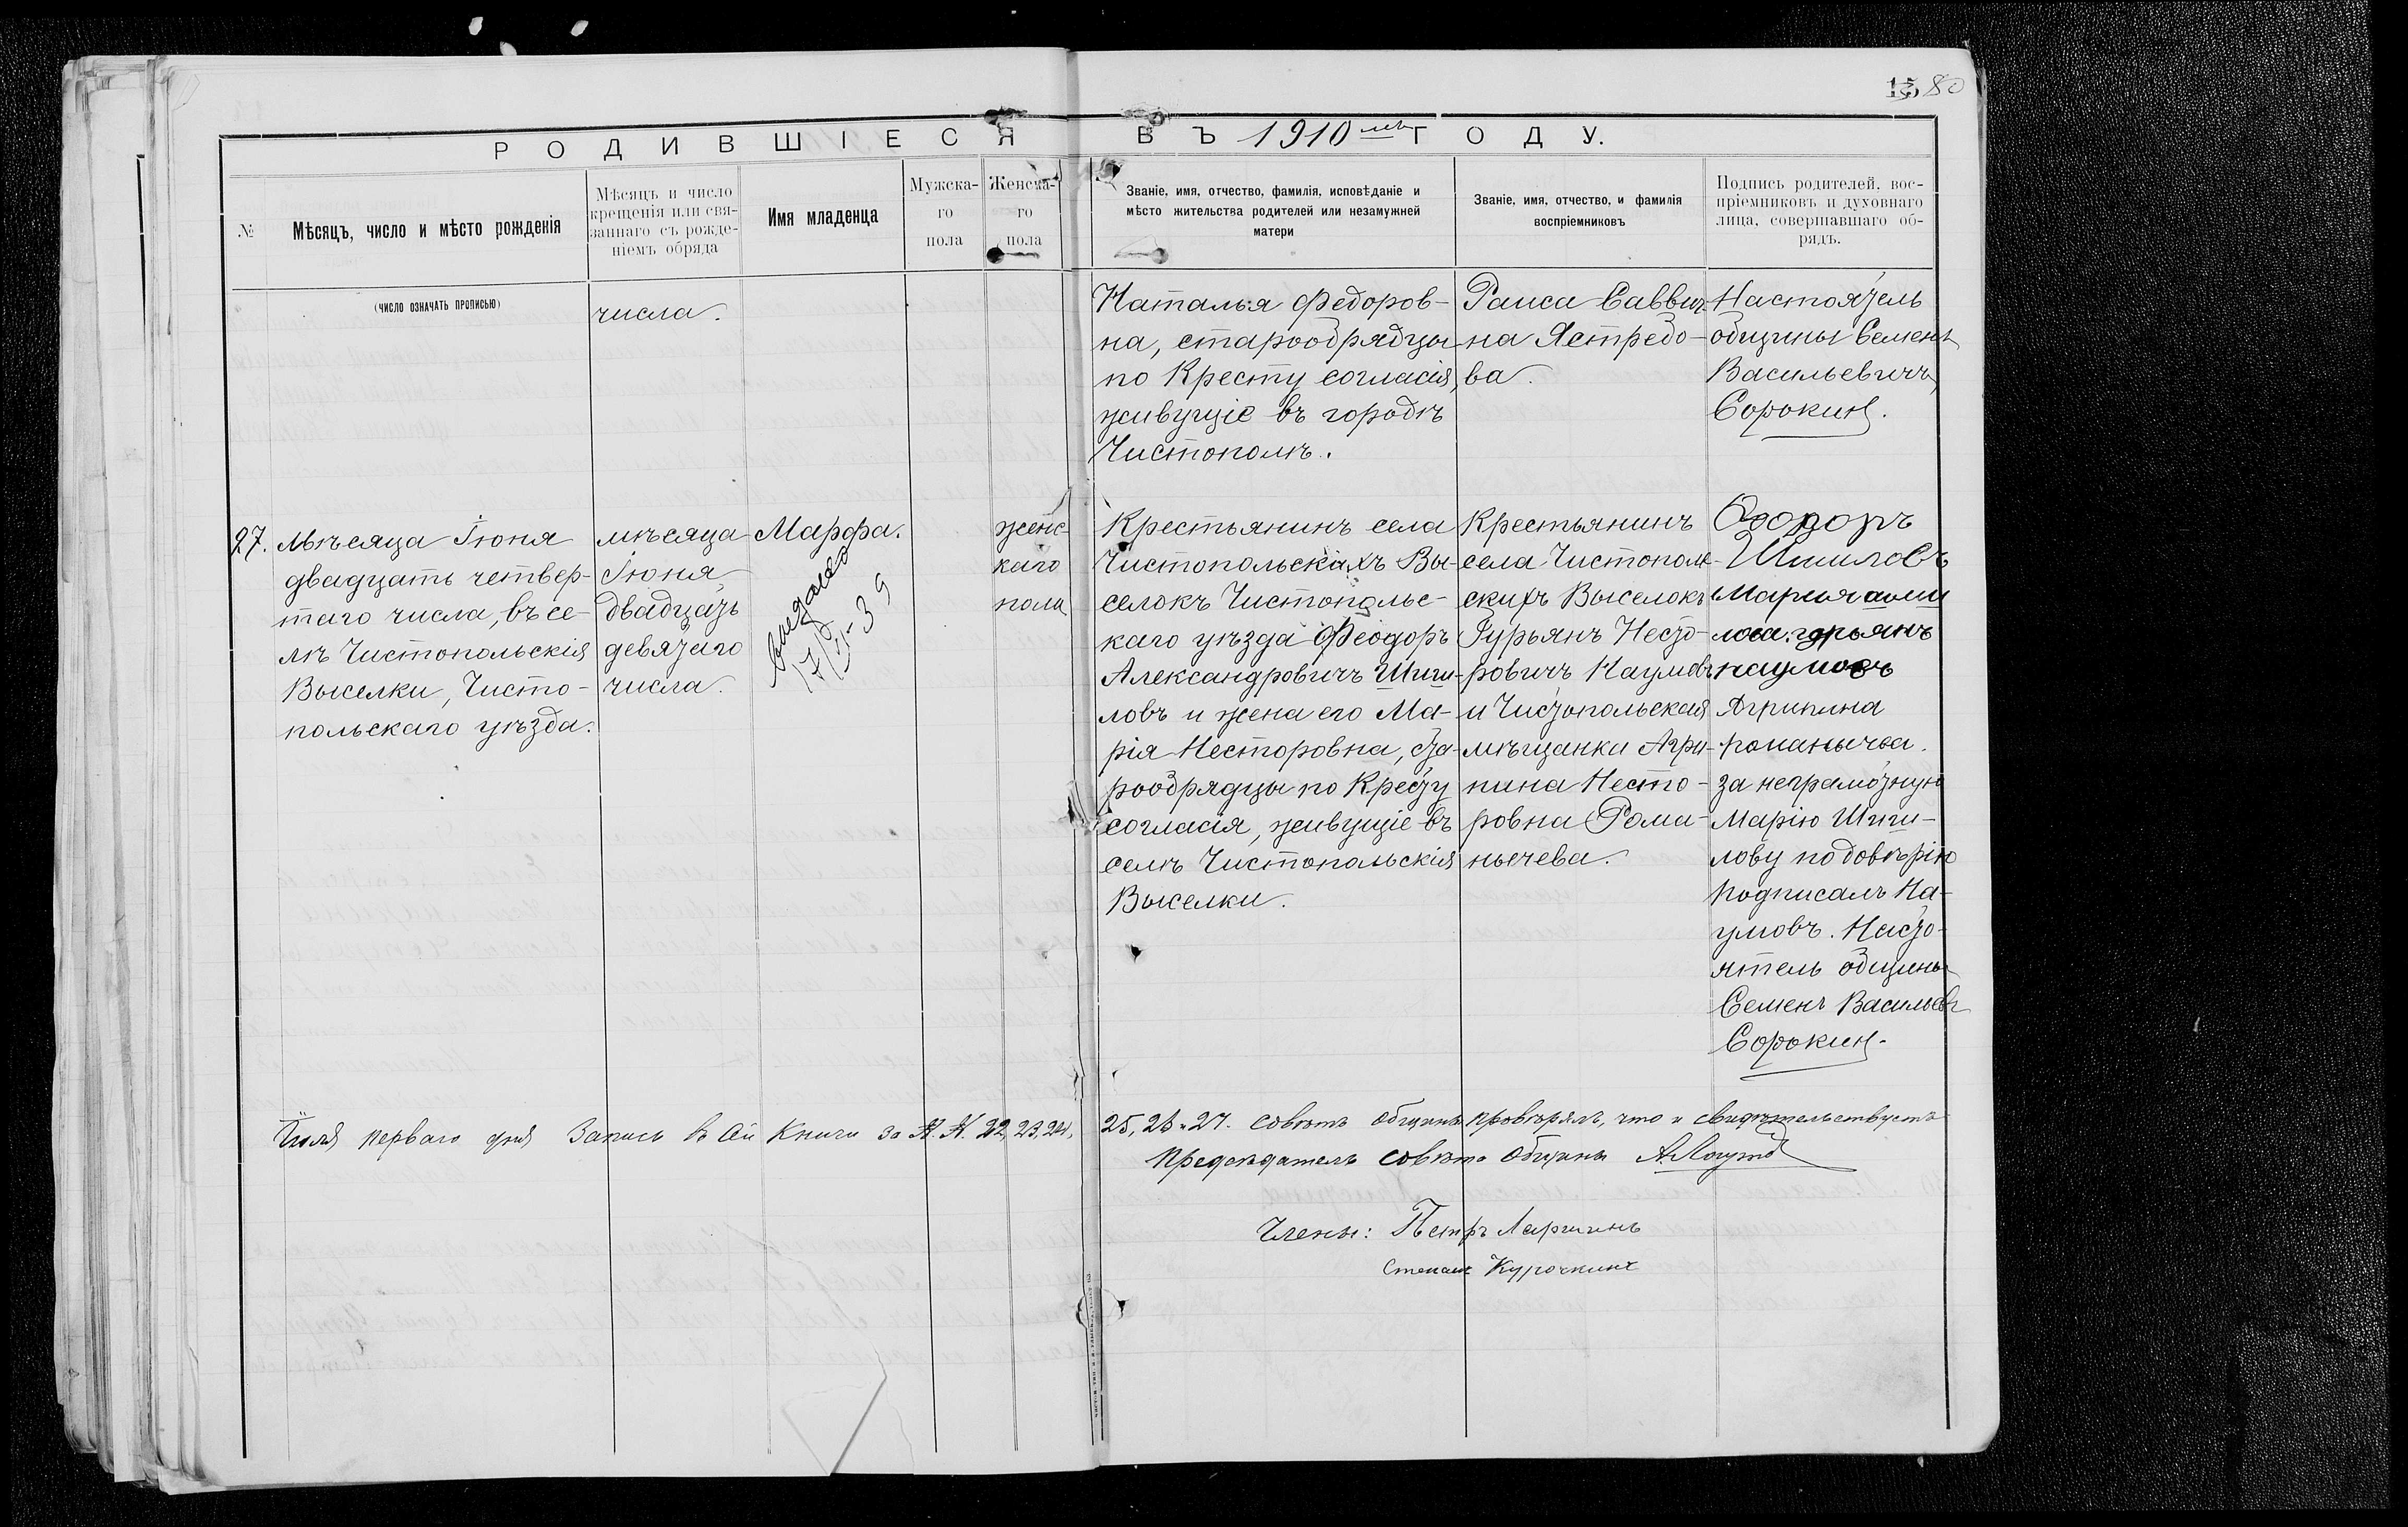 15 80
РОДИВШІЕСЯ ВЪ 1910мъ ГОДУ.
№
Мѣсяцъ, число и мѣсто рожденія
Мѣсяцъ и число
крещенія или свя-
заннаго съ рожде-
ніемъ обряда
Имя младенца
Мужска-
го
пола
Женска-
го
пола
Званіе, имя, отчество, фамилія, исповѣданіе и
мѣсто жительства родителей или незамужней
матери
Званіе, имя, отчество, и фамилія
воспріемниковъ
Подпись родителей, вос-
пріемниковъ и духовнаго
лица, совершавшаго об-
рядъ.
(ЧИСЛО ОЗНАЧАТЬ ПРОПИСЬЮ)
числа.
Наталья Федоров-
на, старообрядцы
по Кресту согласія,
живущіе въ городѣ
Чистополѣ.
Раиса Саввич-
на Ястребо-
ва.
Настоятель
общины Семенъ
Васильевичъ
Сорокинъ.
27.
Мѣсяца Іюня
двадцать четвер-
таго числа, въ се-
лѣ Чистопольскія
Выселки, Чисто-
польскаго уѣзда.
мѣсяца
Іюня
двадцать
девятаго
числа.
Марфа.
17/II-39
женс-
каго
пола
Крестьянинъ села
Чистопольскихъ Вы-
селокъ Чистопольс-
каго уѣзда Феодоръ
Александровичъ Шиги-
ловъ и жена его Ма-
рія Несторовна, ста-
рообрядцы по Кресту
согласія, живущіе въ
селѣ Чистопольскія
Выселки.
Крестьянинъ
села Чистополь-
скихъ Выселокъ
Гурьянъ Несто-
ровичъ Наумовъ
и Чистопольская
мѣщанки Агри-
пина Несто-
ровна Рома-
нычева.
Феодоръ
Шигиловъ
Мария
гурьянъ
наумовъ
Агрипина
романычва.
за неграмотную
Марію Шиги-
лову по довѣрію
подписалъ На-
умовъ. Насто-
ятель общины
Семенъ Васильевъ
Сорокинъ.
Іюля перваго дня Запись в сѣй Книги за №. №. 22, 23, 24,
25, 26 и 27. совѣтъ общины провѣрялъ, что и свидѣтельствуетъ
Председатель совѣта Общины
Члены: Петръ Ларшинъ
Степанъ Курочкинъ